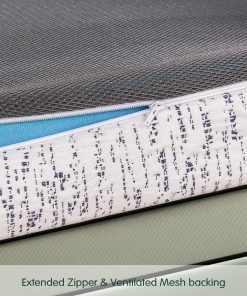 Extended Zipper & Ventilated Mesh backing